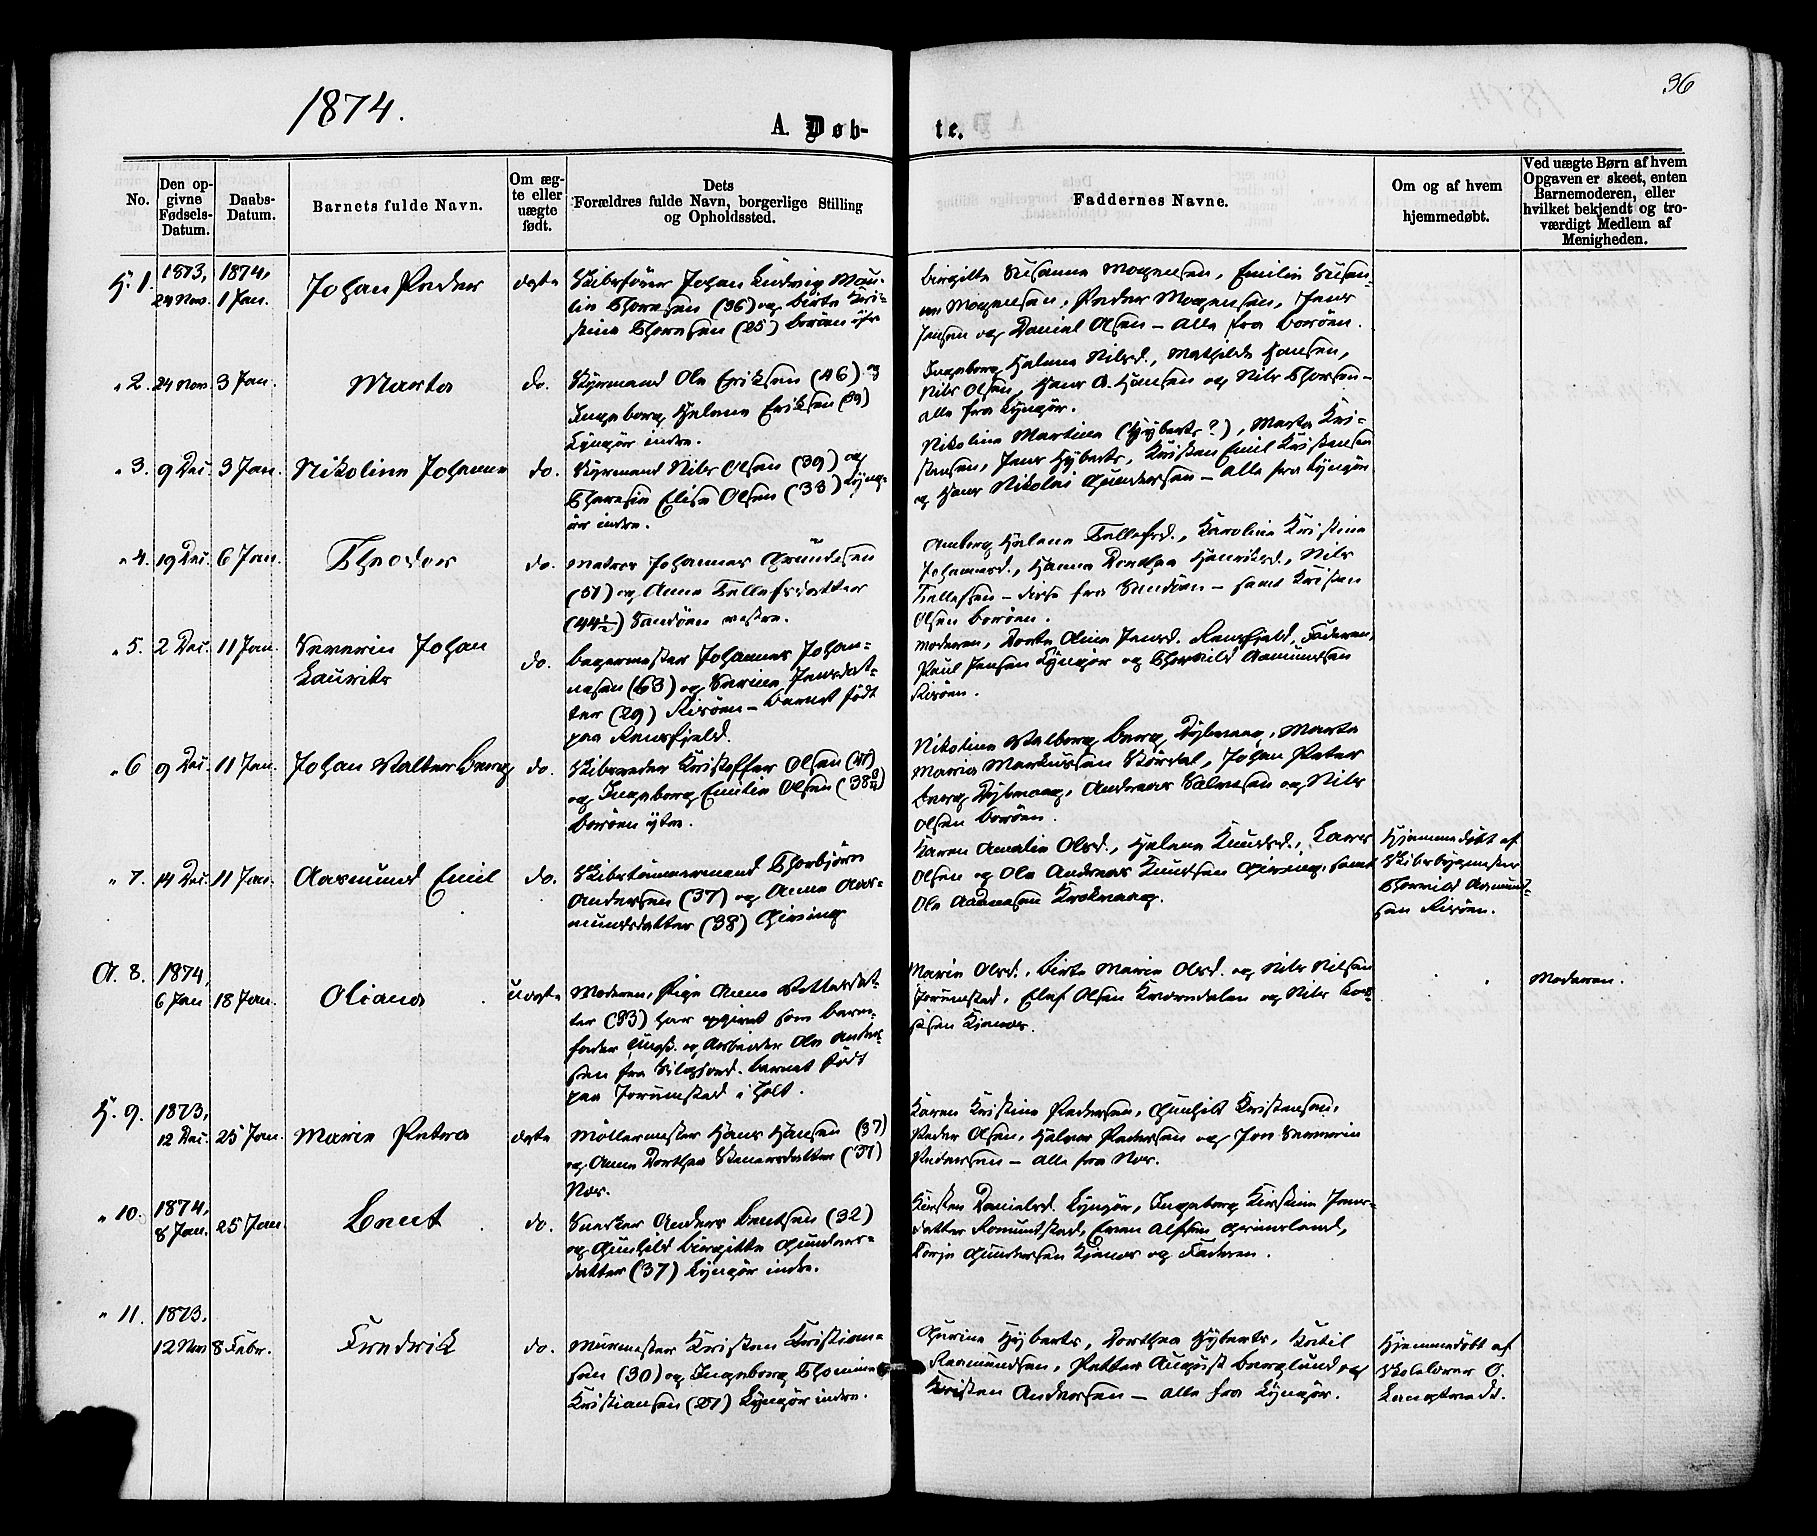 36
1874.
A. Døb-
te.
No.
Den op-
givne
Fødsels-
Datum.
Daabs-
Datum.
Barnets fulde Navn.
Om æg-
te eller
uægte
født.
Dets
Forældres fulde Navn, borgerlige Stilling
og Opholdssted.
Faddernes Navne.
Om og af hvem
hjemmedøbt.
Ved uægte Børn af hvem
Opgaven er skeet, enten
Barnemoderen, eller
hvilket bekjendt og tro-
værdigt Medlem af
Menigheden.
H. 1. 1873, 24 Nov. 1874, 1 Jan. Johan Peder ægte
Skibsfører Johan Ludvig Mau-
Thoresen (36) og Birte Kri-
stine Thoresen (25) Borøen
Birgitte Susanne Mogensen, Emilie Susan-
ne Mogensen, Peder Mogensen, Jens
Jensen og Daniel Olsen – alle fra Borøen.
" 2. 24 Nov. 3 Jan. Marta do.
Styrmand Ole Eriksen (46) og
Ingeborg Helene Eriksen (39)
Lyngør indre.
Ingeborg Helene Nilsd., Mathilde Hansen,
Nils Olsen, Hans O. Hansen og Nils Thorsen –
alle fra Lyngør.
" 3. 9 Dec. 3 Jan. Nikoline Johanne do.
Styrmand Nils Olsen (39) og
Theresie Elise Olsen (33) Lyng-
ør indre.
Nikoline Martine (Hyberts?), Marta Kri-
stensen, Jens Hyberts, Kristen Emil Kristensen
og Hans Nikolai Gundersen – alle fra Lyngør
" 4. 19 Dec. 6 Jan. Theodor do.
Matros Johannes Gundesen
(51) og Anne Tellefsdatter
(44½) Sandøen vestre.
Amberg Helene Tellefsd., Karoline Kristine
Johannesd., Hanna Dorthea Henriksd., Nils
Tellefsen – disse fra Sandøen – samt Kristen
Olsen Borøen.
" 5. 2 Dec. 11 Jan. Severin Johan
Laurits do.
Bagermester Johannes Johan-
nesen (63) og Serine Jensdat-
ter (29) Risøen – barnet født
paa Ramsfjeld.
Moderen, Dorte Aline Jensd. Ramsfjeld, Faderen,
Paul Jensen Lyngør og Thorvild Aamundsen
Risøen.
" 6 9 Dec. 11 Jan. Johan Valter Berg do.
Skibsreder Kristoffer Olsen
og Ingeborg Emilie Olsen
Borøen ytre.
Nikoline Valborg Berg Dybvaag, Marta
Marie Markussen Størdal, Johan Peter
Berg Dybvaag, Andreas Salvesen og Nils
Olsen Borøen.
" 7. 14 Dec. 11 Jan. Aasmund Emil do.
Skibstømmermand Thorbjørn
Andersen (37) og Anne Aas-
mundsdatter (38) Gjeving
Karen Amalie Olsd., Helene Knudsd., Lars
Olsen og Ole Andreas Knudsen Gjeving, samt
Ole Aadnesen Krokvaag.
Hjemmedøbt af
Skibsbygmester
Thorvild Aamund-
sen Risøen.
A. 8. 1874, 6 Jan 18 Jan. Oliana uægte
Moderen, Pige Anne Pettersdat-
ter (33) har opgivet som barne-
fader Ungk. og Arbeider Ole Ander-
sen fra Songe. barnet født
paa Jorunstad i Holt.
Marie Olsd., Birte Marie Olsd. og Nils Nilsen
Jorunstad, Elef Olsen Kverndalen og Nils
Kjenes.
Moderen.
H. 9. 1873, 12 Dec. 25 Jan. Marie Petra ægte
Møllermester Hans Hansen (37)
og Anne Dorthea Stenersdatter (37)
Nes.
Karen Kristine Pedersen, Gunhild Kristensen,
Peder Olsen, Halvor Pedersen og Jon Severin
Pedersen – alle fra Nes.
" 10. 1874, 8 Jan. 25 Jan. Bent do.
Snedker Anders Bentsen (32)
og Gunhild Birgitte Gunders-
datter (37) Lyngør indre.
Kirsten Danielsd. Lyngør, Ingeborg Kirstine Jens-
datter Romundstad, Even Alfsen Grimeland,
Terje Gundersen Kjenes og Faderen.
" 11. 1873. 12 Nov 8 Febr. Fredrik do.
Murmester Kristen Kristian-
sen (30) og Ingeborg Thomine
Kristiansen (27) Lyngør indre.
Gurine Hyberts, Dorthea Hyberts, Ketil
Rasmundsen, Petter August Berglund og
Kristen Andersen – alle fra Lyngør.
Hjemmedøbt af
Skolelærer O.
Langtvedt.